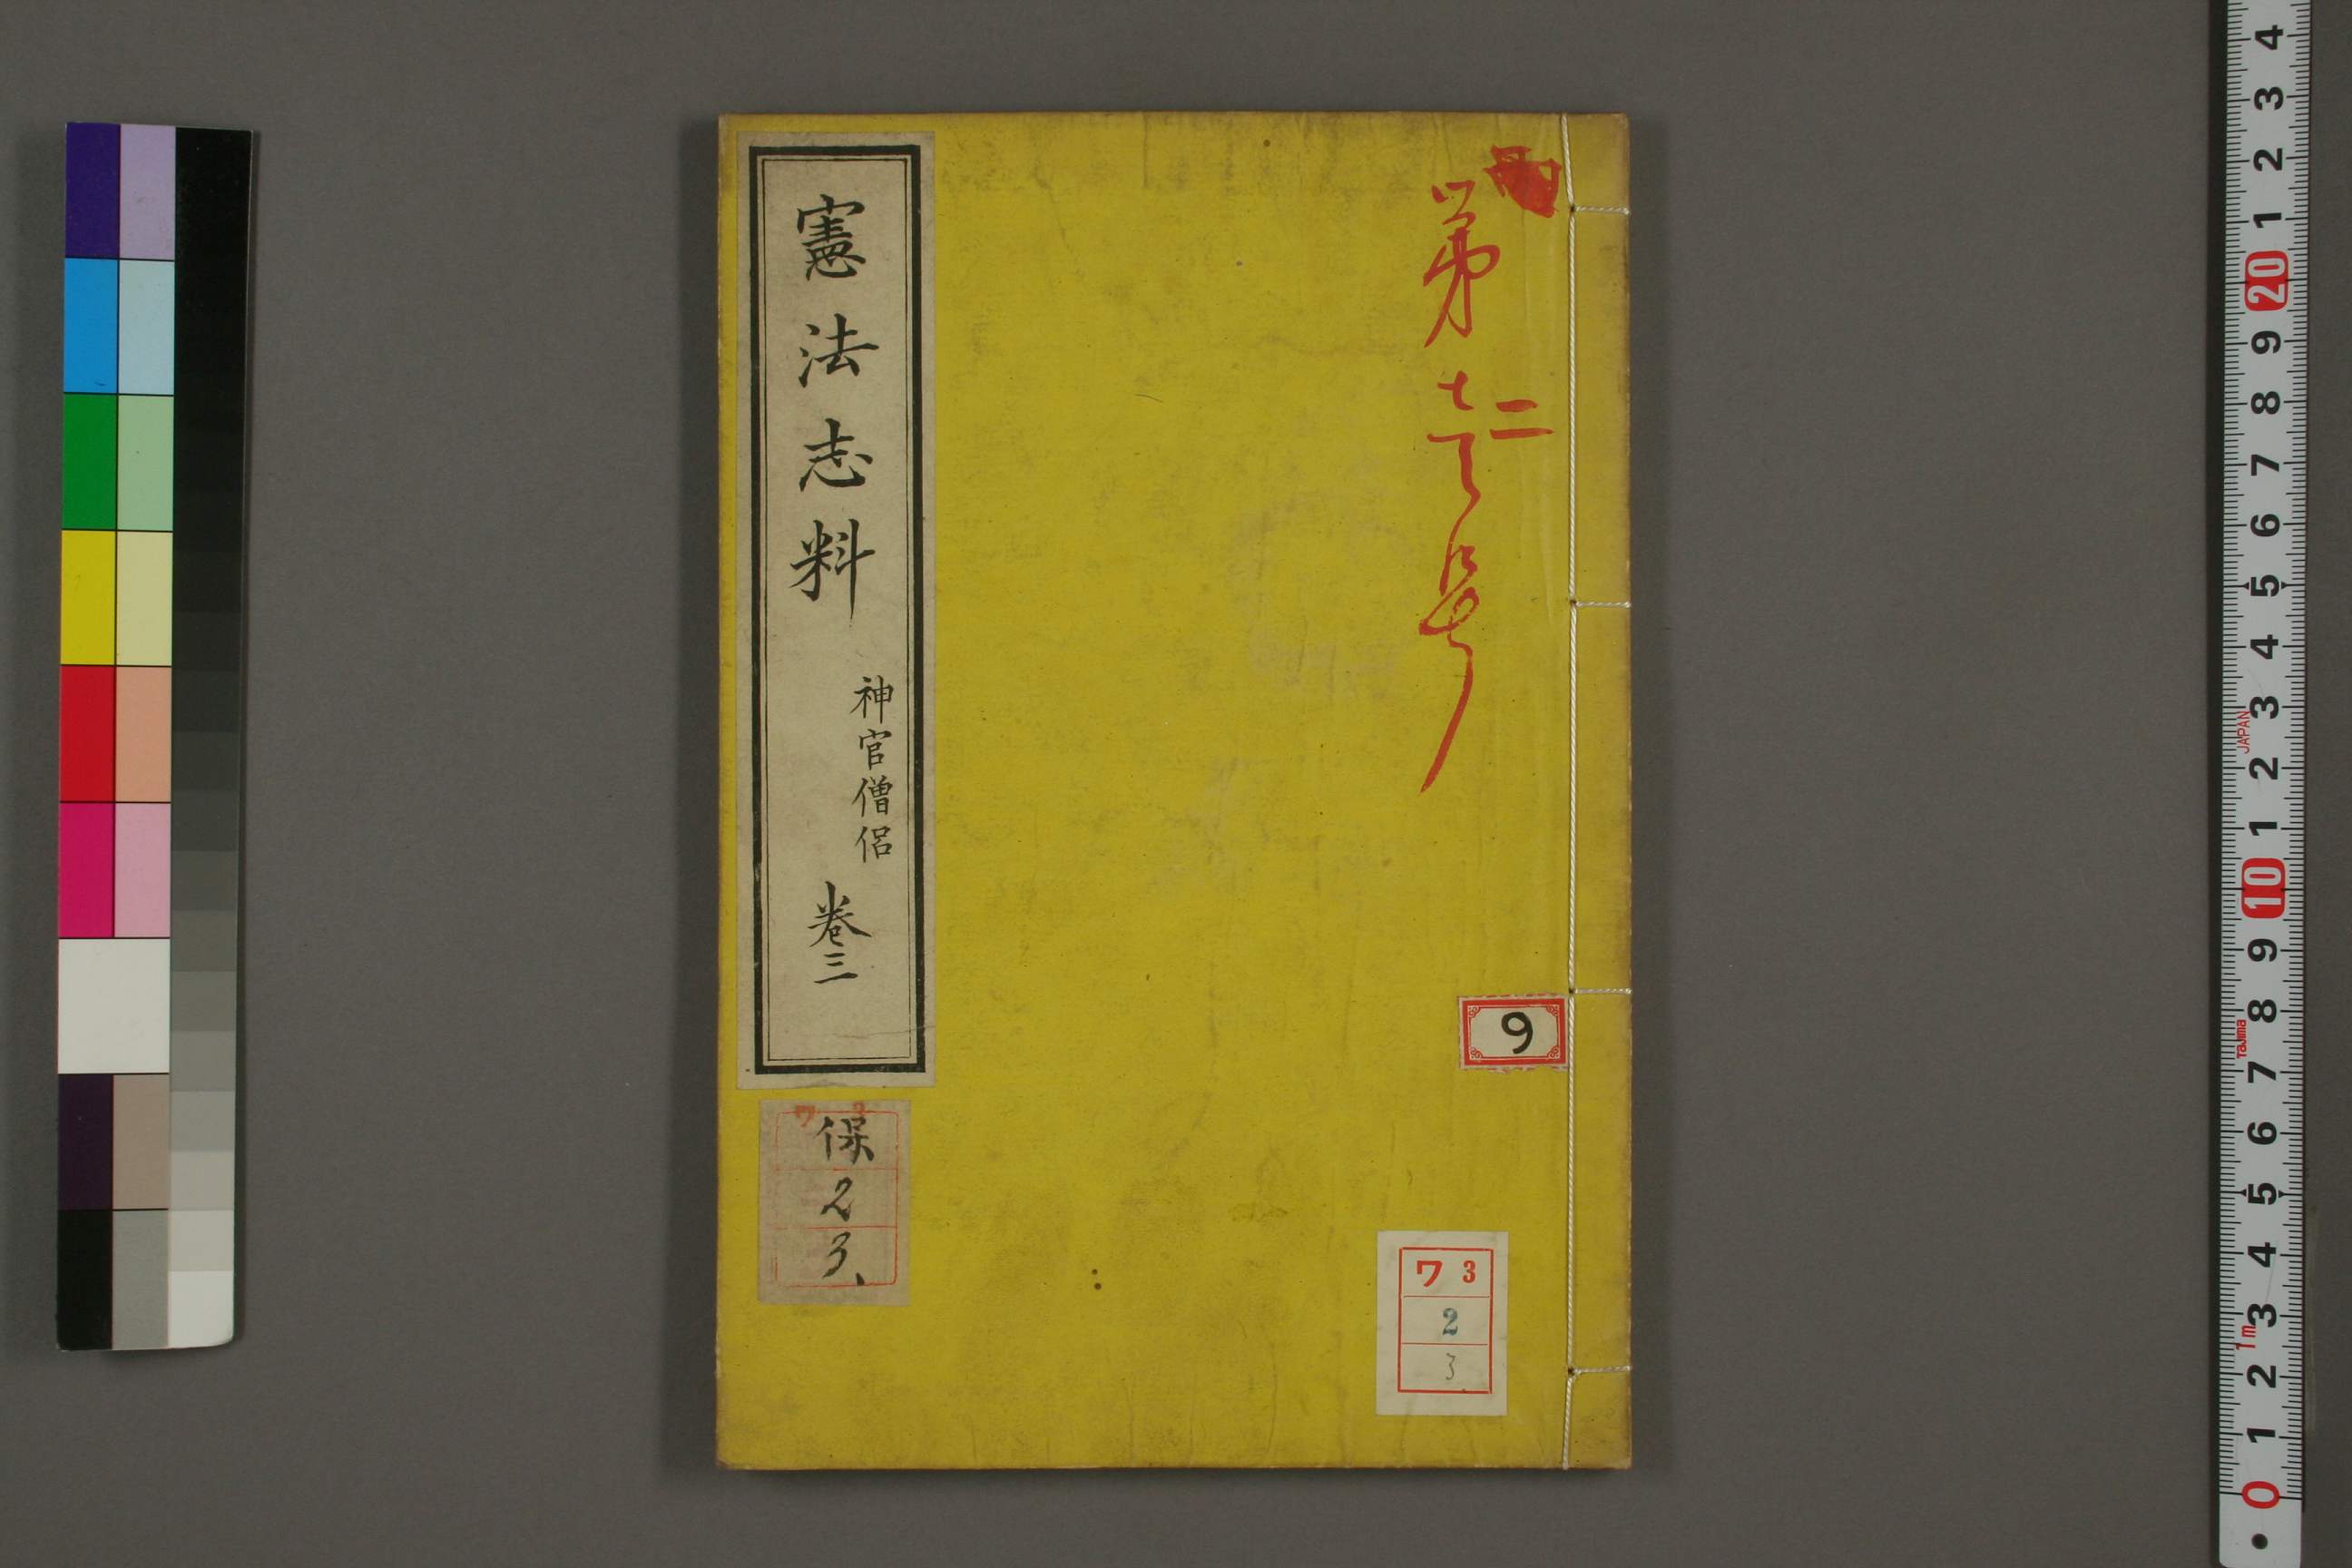 憲法志料
神官僧侶
巻三
第
二
号
9
保
2
3
ワ 3
2
3
4
3
2
1
20
9
8
7
6
5
4
3
JAPAN
2
1
10
9
8
Tajima
7
6
5
4
3
1m
2
1
0